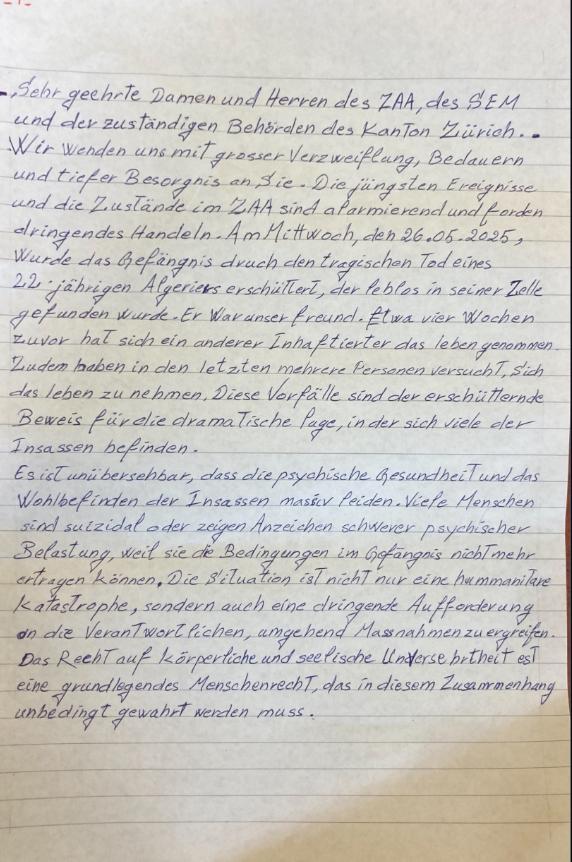 Sehr geehrte Damen und Herren des ZAA, des SEM
und der zuständigen Behörden des Kanton Zürich..
Wir wenden uns mit grosser Verzweiflung, Bedauern
und tiefer Besorgnis an Sie. Die jüngsten Ereignisse
und die Zustände im ZAA sind alarmierend und forden
dringendes Handeln. Am Mittwoch, den 26.05.2025,
wurde das Gefängnis druch den tragischen Tod eines
22-jährigen Algeriers erschüttert, der leblos in seiner Zelle
gefunden wurde. Er War unser freund. Etwa vier Wochen
zuvor hat sich ein anderer Inhaftierter das leben genommen.
Zudem haben in den letzten mehrere Personen versucht, sich
das leben zu nehmen. Diese Vorfälle sind der erschütternde
Beweis für die dramatische lage, in der sich viele der
Insassen befinden.
Es ist unübersehbar, dass die psychische Gesundheit und das
Wohlbefinden der Insassen massiv leiden. Viele Menschen
sind suizidal oder zeigen Anzeichen schwerer psychischer
Belastung, weil sie die Bedingungen im Gefängnis nicht mehr
ertragen können. Die Situation ist nicht nur eine hummanitäre
Katastrophe, sondern auch eine dringende Aufforderung
an die Verantwortlichen, umgehend Massnahmen zu ergreifen.
Das Recht auf körperliche und seelische ist
eine grundlegendes Menschenrecht, das in diesem Zusammenhang
unbedingt gewahrt werden muss.